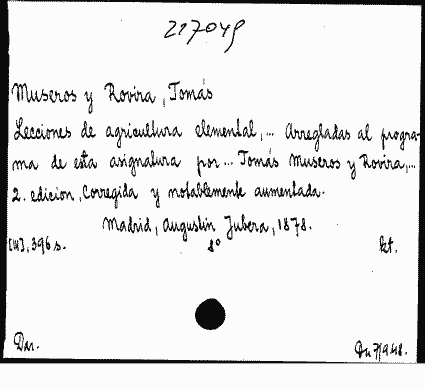 217049
Museros y Rovira, Tomás
Lecciones de agricultura elemental,... Arregladas al progra-
ma de esta asignatura por... Tomás Museros y Rovira,...
2. edicion, Corregida y notablemente aumentada.
Madrid, Augustin Jubera, 1878.
396 s. 8° kt.
Dar.